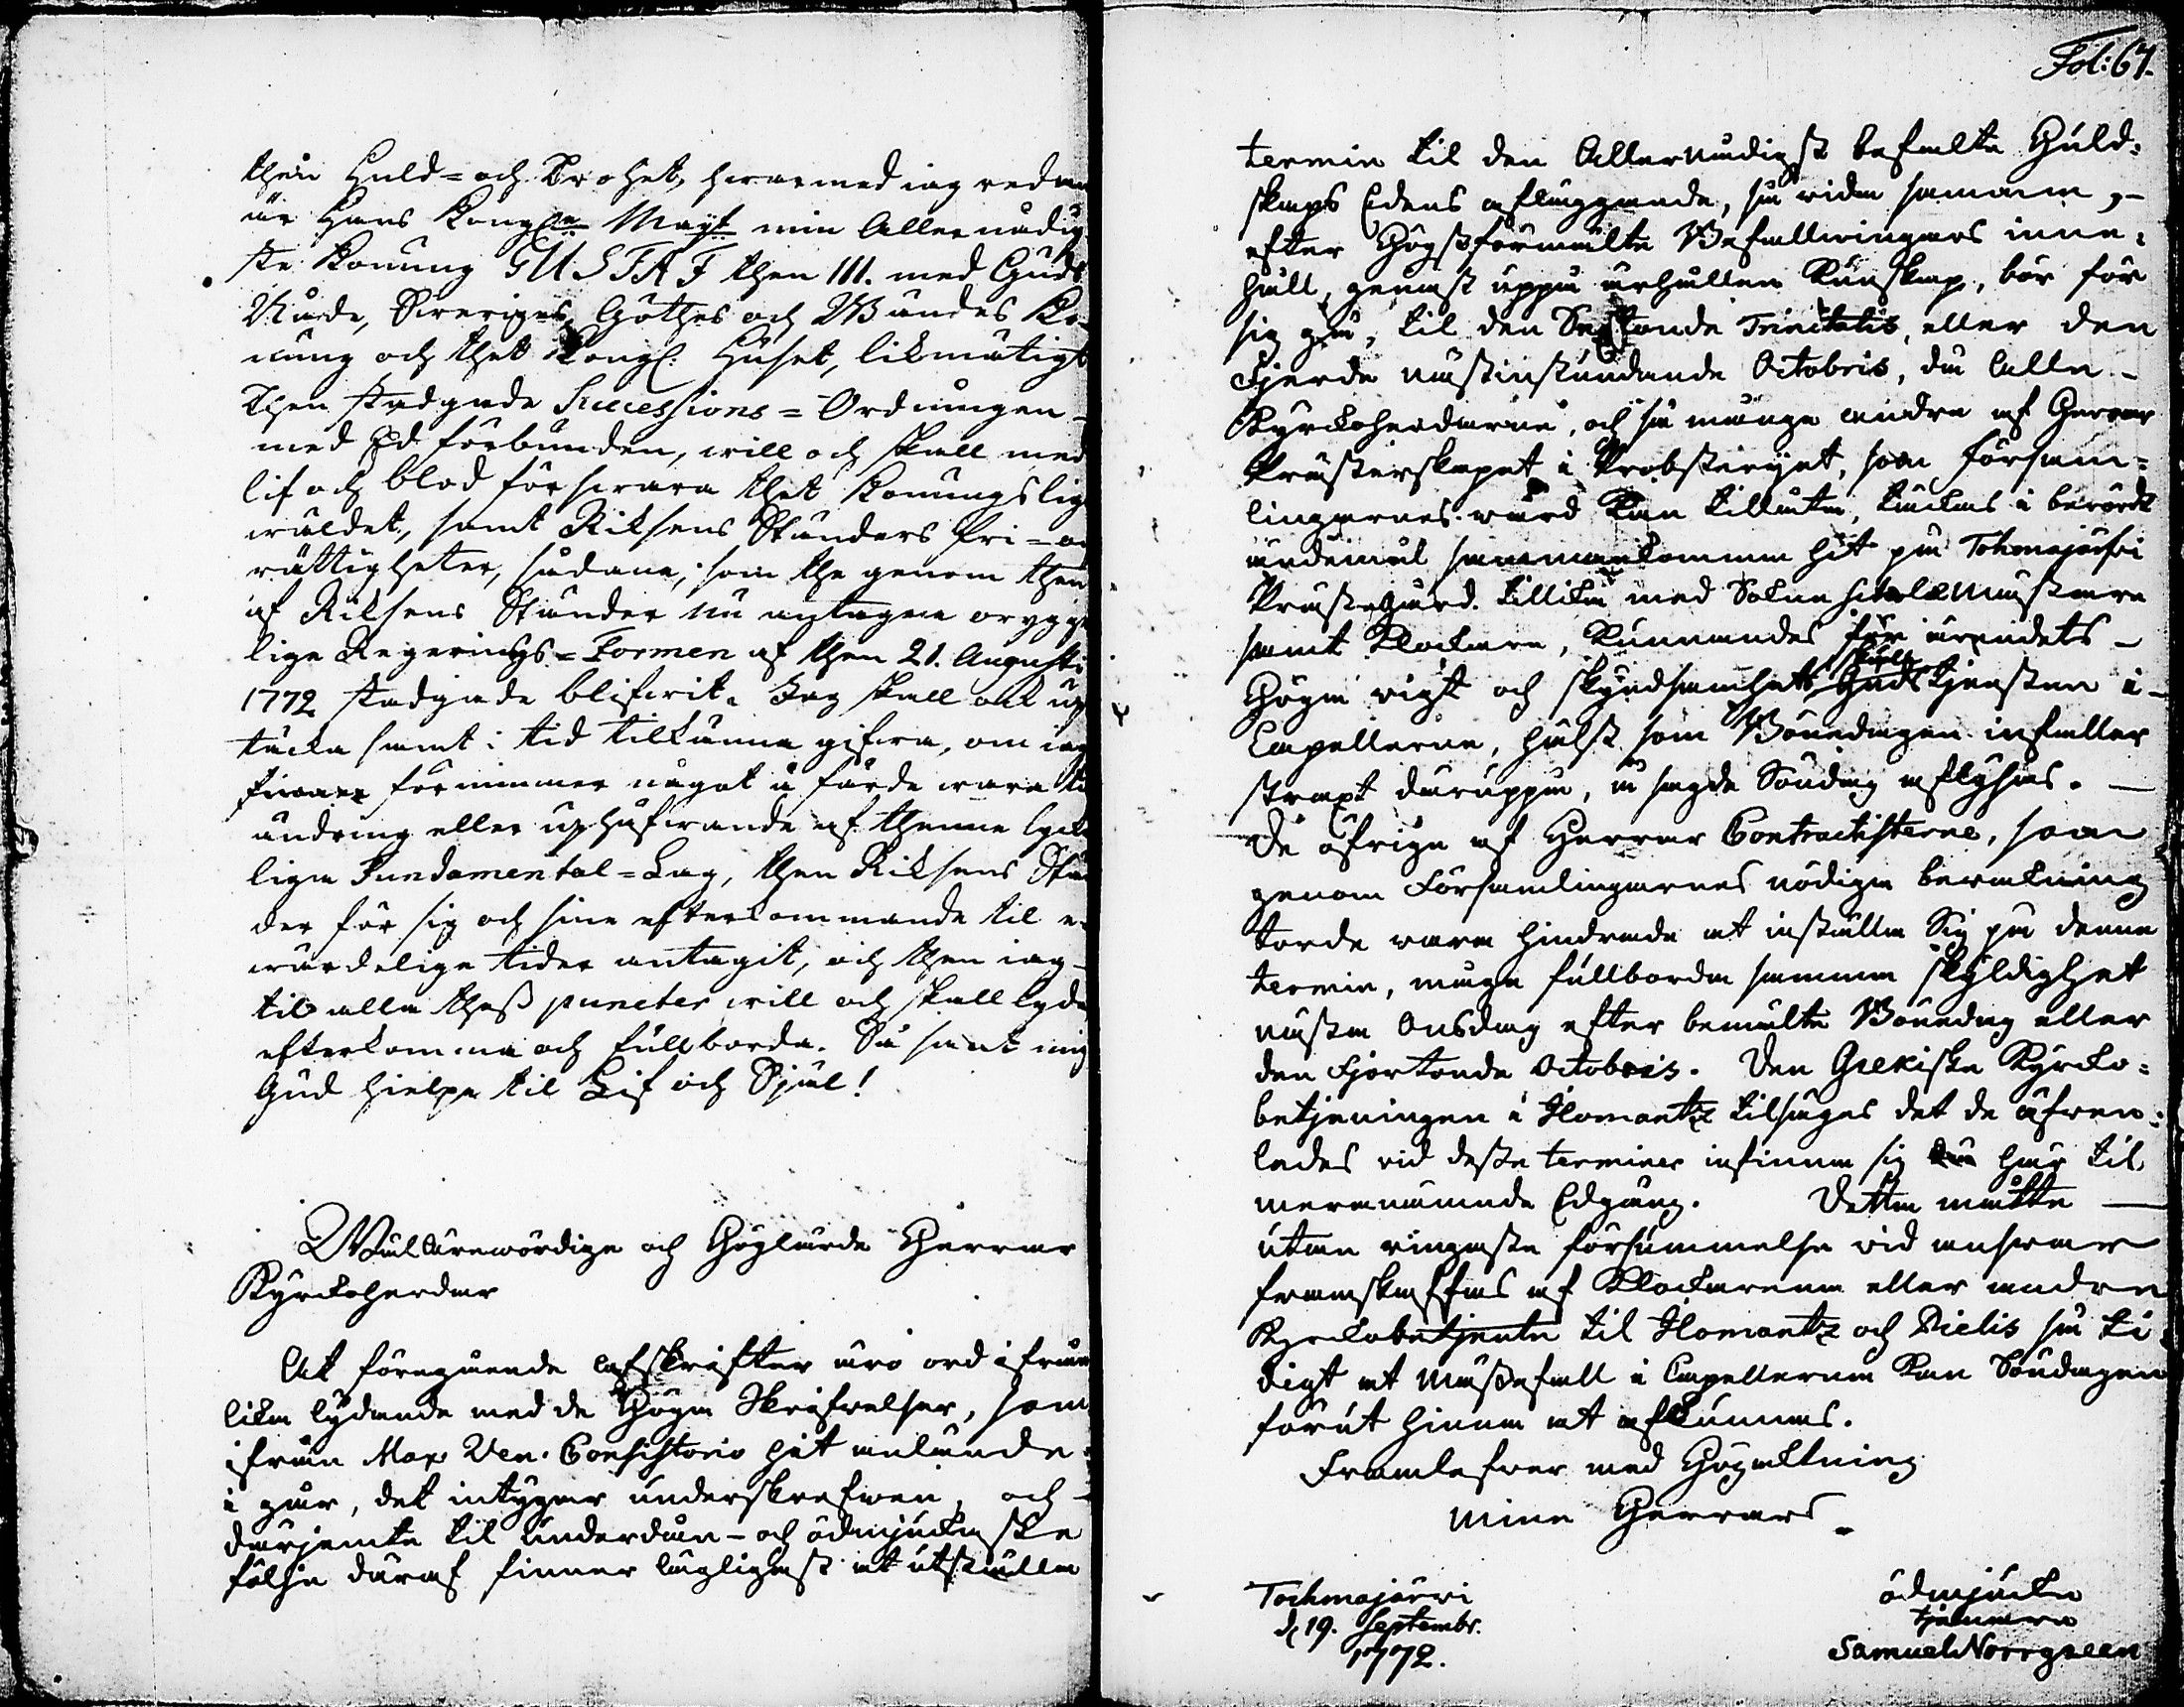 then Huld= och Trohet, hwarmed iag redan
är Hans Kongl:e May:t min Allernådig-
ste Konung GUSTAF then III. med Guds
Nåde, Sweriges, Göthes och Wändes Ko-
nung och thet Kongl. Huset, likmätigt
then stadgade Successions=Ordningen
med Ed förbunden, will och skall med
lif och blod förswara thet Konungslige
wäldet, samt Riksens Ständers fri= och
rättigheter, sådana, som the genom then
af Riksens Ständer nu antagne orygge-
lige Regerings=Formen af then 21. Augusti
1772 stadgade blifwit. Jag skall ock up-
täcka samt i tid tilkänna gifwa, om iag
förnimmer något å färde wara til
ändring eller uphäfwande af thenne lycke-
liga Fundamental=Lag, then Riksens Stän-
der för sig och sine efterkommande til e-
wärdelige tider antagit, och then iag
til alla thess puncter will och skall lyda
efterkomma och fullborda. Så sant mig
Gud hielpe til Lif och Själ!
Wäl Ärewördige och Höglärde Herrar
Kyrckoherdar
At föregående afskrifter äro ord ifrån
lika lydande med de Höga Skrifwelser, som
ifrån Max. Ven. Consistorio hit anlände
i går, det intygar underskrefwen, och
därjemte til underdån- och ödmjuka ske
följe däraf finner lägligast at utställa
Fol: 67.
termin til den Allernådigst befalte Huld-
skaps Edens afläggande, så vida samma,
efter Högstförmälte Befallningars inne-
håll, genast uppå ärhållen Kunskap, bör för
sig gå, til den Sextonde Trinitatis, eller den
Fjerde nästinstundande Octobris, då Alla
Kyrckoherdarne, och så många andra af Herrar
Prästerskapet i Probsteriet, som försam-
lingarnes wård kan tillåta, täckas i berörde
ärdemål sammankomma hit på Tohmajärfvi
Prästegård. tillika med Sokne Scholæ Mästare
samt Klockare, kunnandes för ärendets
Höga vigt och skyndsamhets skull Gudstjensten i
Capellerne, hälst som Bönedagen infaller
straxt däruppå, å sagde Söndag aflysas.
De öfrige af Herrar Contractisterne, som
genom Församlingarnes nödiga bewakning
torde wara hindrade at inställa Sig på denna
termin, måga fullborda samma skyldighet
nästa Onsdag efter bemälte Bönedag eller
den Fjortonde Octobris. Den Grekiska Kyrcko-
betjeningen i Ilomantz tilsäges det de äfwen-
ledes vid desse terminer infinna sig här til
meranämnde Edgång. Detta måtte
utan ringaste försummelse vid answar
framskaffas af Klockarena eller andra
Kyrckobetjente til Ilomantz och Pielis så ti-
digt at Mässefall i Capellerna kan Söndagen
förut hinna at afkunnas.
Framlefwer med Högacktning
Mine Herrars
Tochmajärvi
d. 19. Septembr.
1772.
ödmjucka
tjenare
Samuel Norrgreen